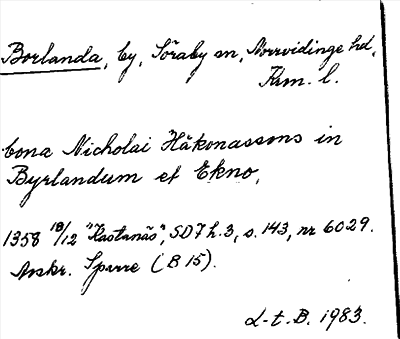 Borlanda, by, Söraby sn, Norrvidinge hd,
Kron. l.
bona Nicholai Håkonassons in
Byrlandum et Ekno,
1358 18/12 "Kastanäs", SD 7 h. 3, s. 143, nr 6029.
Avskr. Sparre (B 15).
L-t. B. 1983.